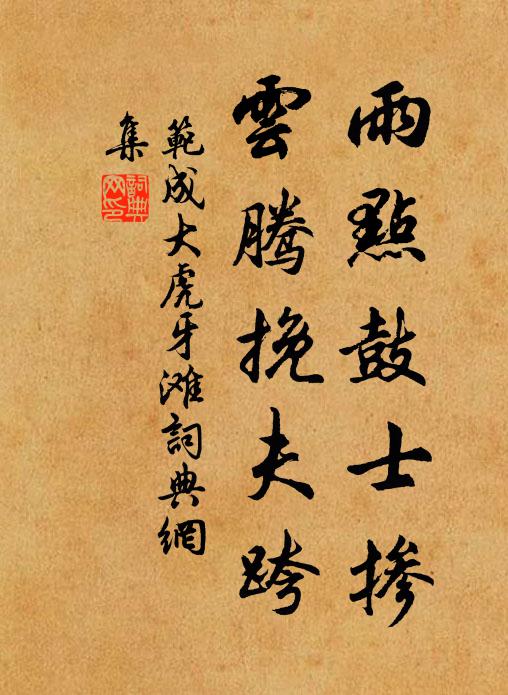 雨點鼓士摻
雲騰挽夫跨
範成大虎牙滩詞典網
集
詞典網印